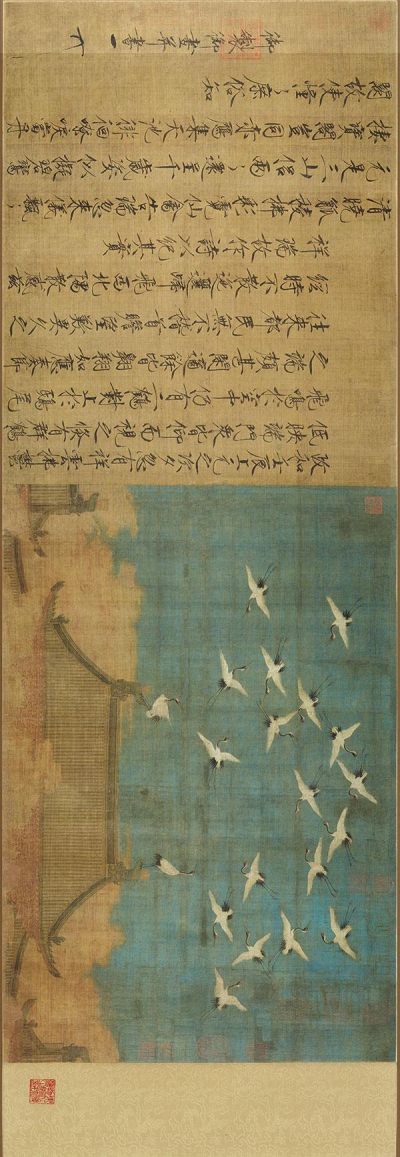 政和壬辰上元之次夕忽有祥雲拂鬱
低映端門眾皆仰而視之倏有群鶴
飛鳴於空中仍有二鶴對止於鴟尾
之端頗甚閑適餘皆翱翔如應奏節
往來都民無不稽首瞻望歎異久之
經時不散迤邐歸飛西北隅散感茲
祥瑞故作詩以紀其實
清曉觚稜拂彩霓仙禽告瑞忽來儀飄々
元是三山侶兩々還呈千歲姿似擬碧鸞
棲寶閣豈同赤雁集天池徘徊嘹唳當丹
闕故使憧々庶俗知
御製御畫并書